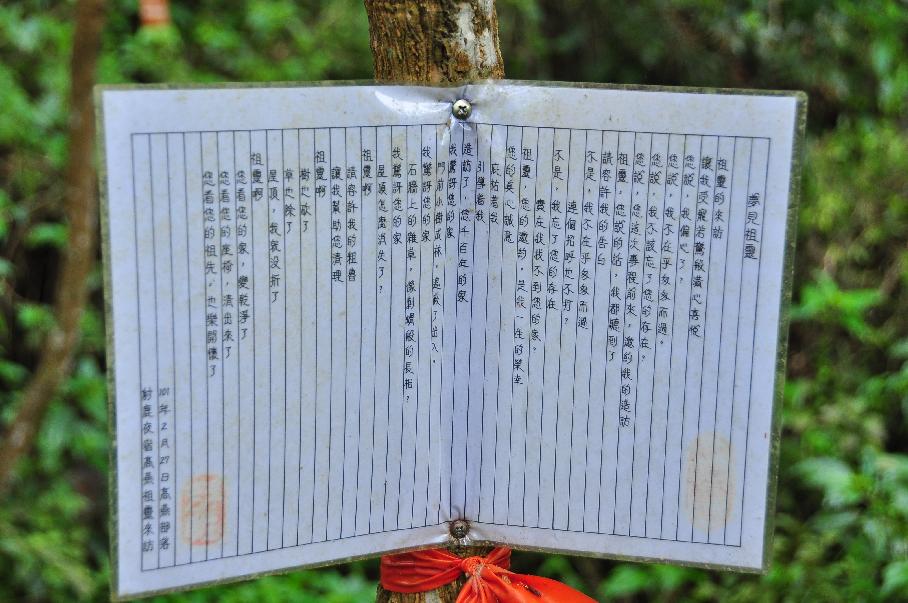 夢見祖靈
祖靈的來訪
讓我受寵若驚敬滿心喜悅
您說，我偏心了
您說，我不在乎匆匆而過。
您說，我不該忘了您的存在。
您這次夢裡前來，邀約我的造訪
祖靈，您說的話，我都聽到了
請容許我的告白
不是，我不在乎匆匆而過
連偏招呼也不打？
不是，我忘了您的存在
實在我找不到您的家。
祖靈，您的邀約，是我一生的榮幸
您的美心誠意
庇祐著我
引導著我
造訪了，您千百度的家
我驚訝您的家
門前小樹成林，遮蔽了出入，
我驚訝您的家
石牆上的雜草，像創蝸般的長相？
我驚訝您的家
屋頂怎麼消失了？
祖靈啊
請容許我的粗魯
讓我幫助您清理
祖靈啊
樹也砍了
草也除了
屋頂，我就沒折了
祖靈啊
您看您的家，變乾淨了
您看您的座椅，清出來了
您看您的祖先，也樂開懷了
101年2月27日高燕部落
射鹿夜宿高燕祖靈來訪